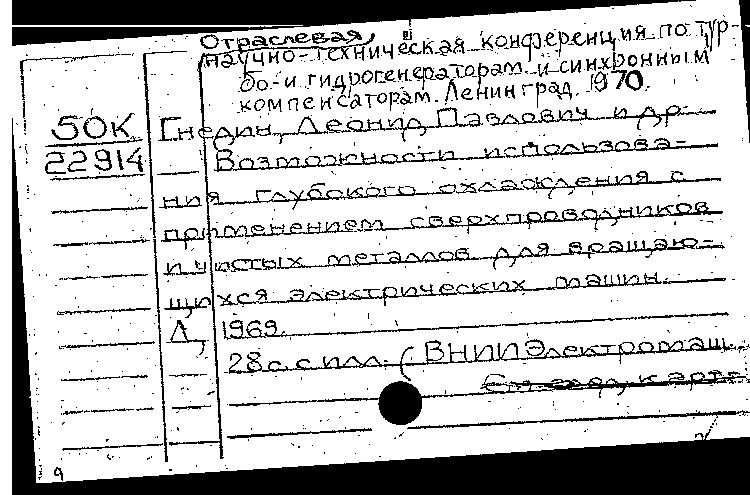 Отраслевая
научно-техническая конференция по тур-
бо- и гидрогенераторам и синхронным
компенсаторам. Ленинград. 1970.
50К Гнедин, Леонид Павлович и др.
22914 Возможности использова-
ния глубокого охлаждения с
применением сверхпроводников
и чистых металлов для вращаю-
щихся электрических машин.
Л, 1969.
28 с. с илл. (ВНИИЭлектромаш.
9